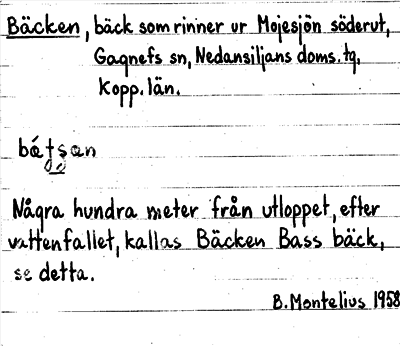 Bäcken, bäck som rinner ur Mojesjön söderut,
Gagnefs sn, Nedansiljans doms. tg.
Kopp. län.
Några hundra meter från utloppet, efter
vattenfallet, kallas Bäcken Bass bäck,
se detta.
B. Montelius 1958